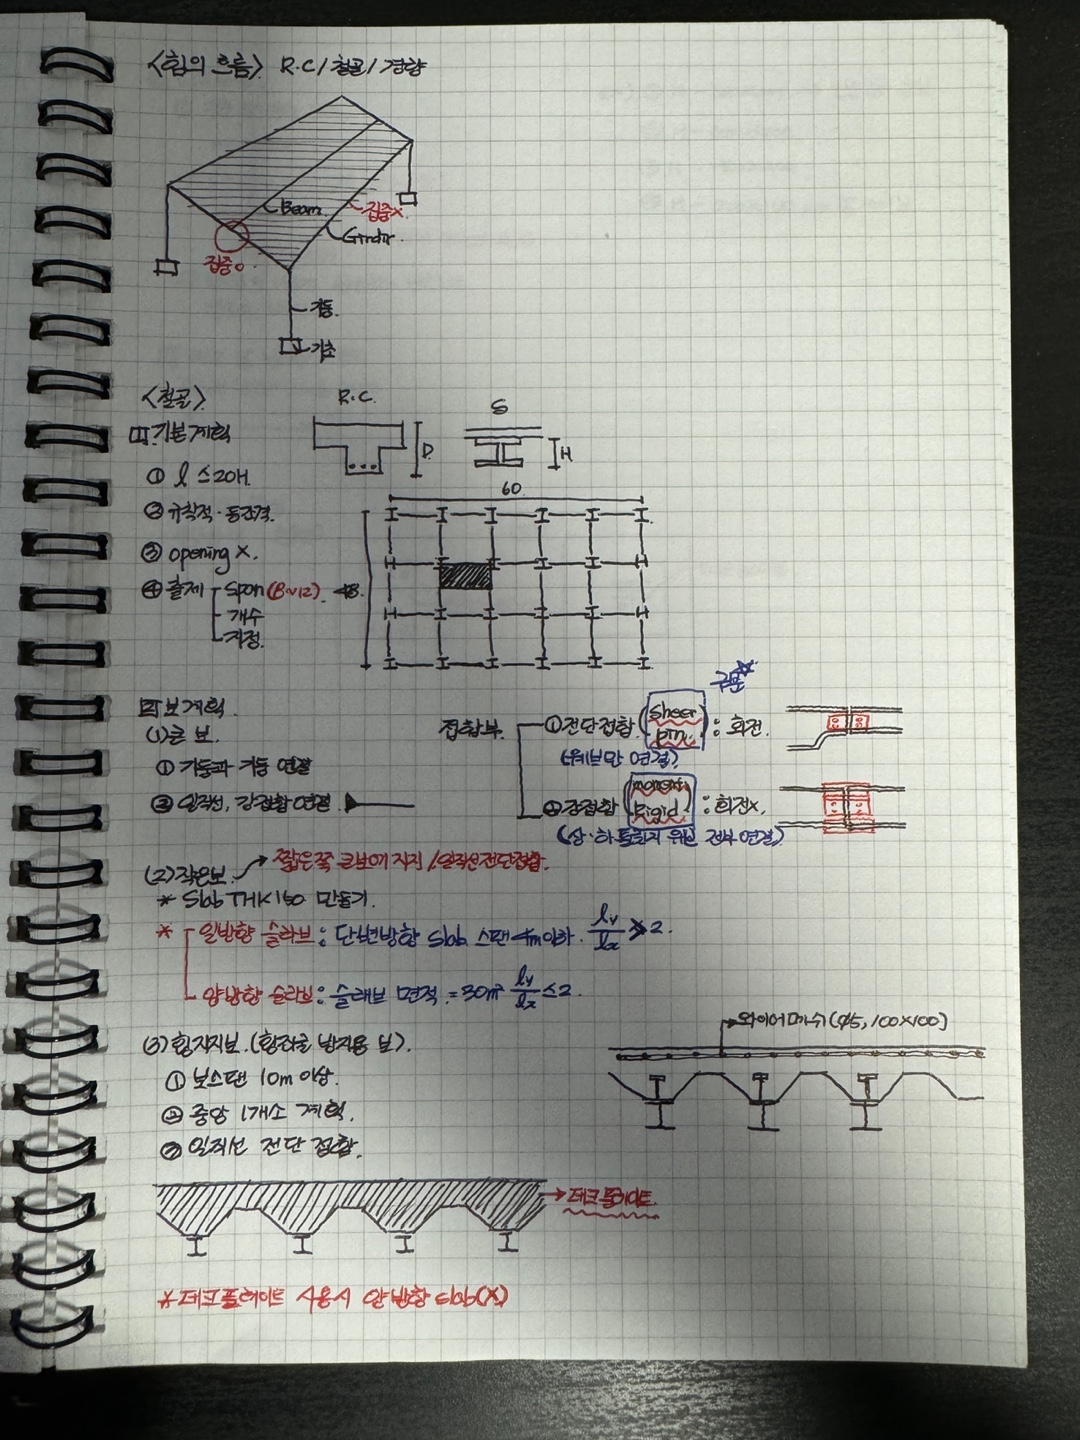 <힘의 흐름> R.C/철골/경향
Beam
집중x.
Girdir.
집중o.
기둥.
기초
<철골>
R.C.
S
D
H
① 기본계획
① l ≤ 20H.
② 규칙적·등간격.
③ opening X.
④ 출제 span (8~12).
개수
지정.
60
48
② 보계획.
(1) 큰 보.
① 기둥과 기둥 연결
② 일직선, 강접합 연결
접합부.
구분
① 전단접합 (Sheer pin) : 회전.
(웨브만 연결)
② 강접합 (moment Rigid) : 회전x.
(상·하 플랜지 웨브 전부 연결)
(2) 작은보. → 짧은쪽 큰보에 지지 / 일직선 전단접합.
* Slab THK 150 만들기.
* 일방향 슬라브 : 단변방향 Slab 스팬 4m이하. ly/lx > 2.
양방향 슬라브 : 슬래브 면적 = 30m² ly/lx ≤ 2.
와이어메쉬 (φ5, 100×100)
(3) 횡지지보. (횡좌굴 방지용 보).
① 보스팬 10m 이상.
② 중앙 1개소 계획.
③ 일직선 전단 접합.
데크플레이트.
* 데크플레이트 사용시 양방향 slab(X)